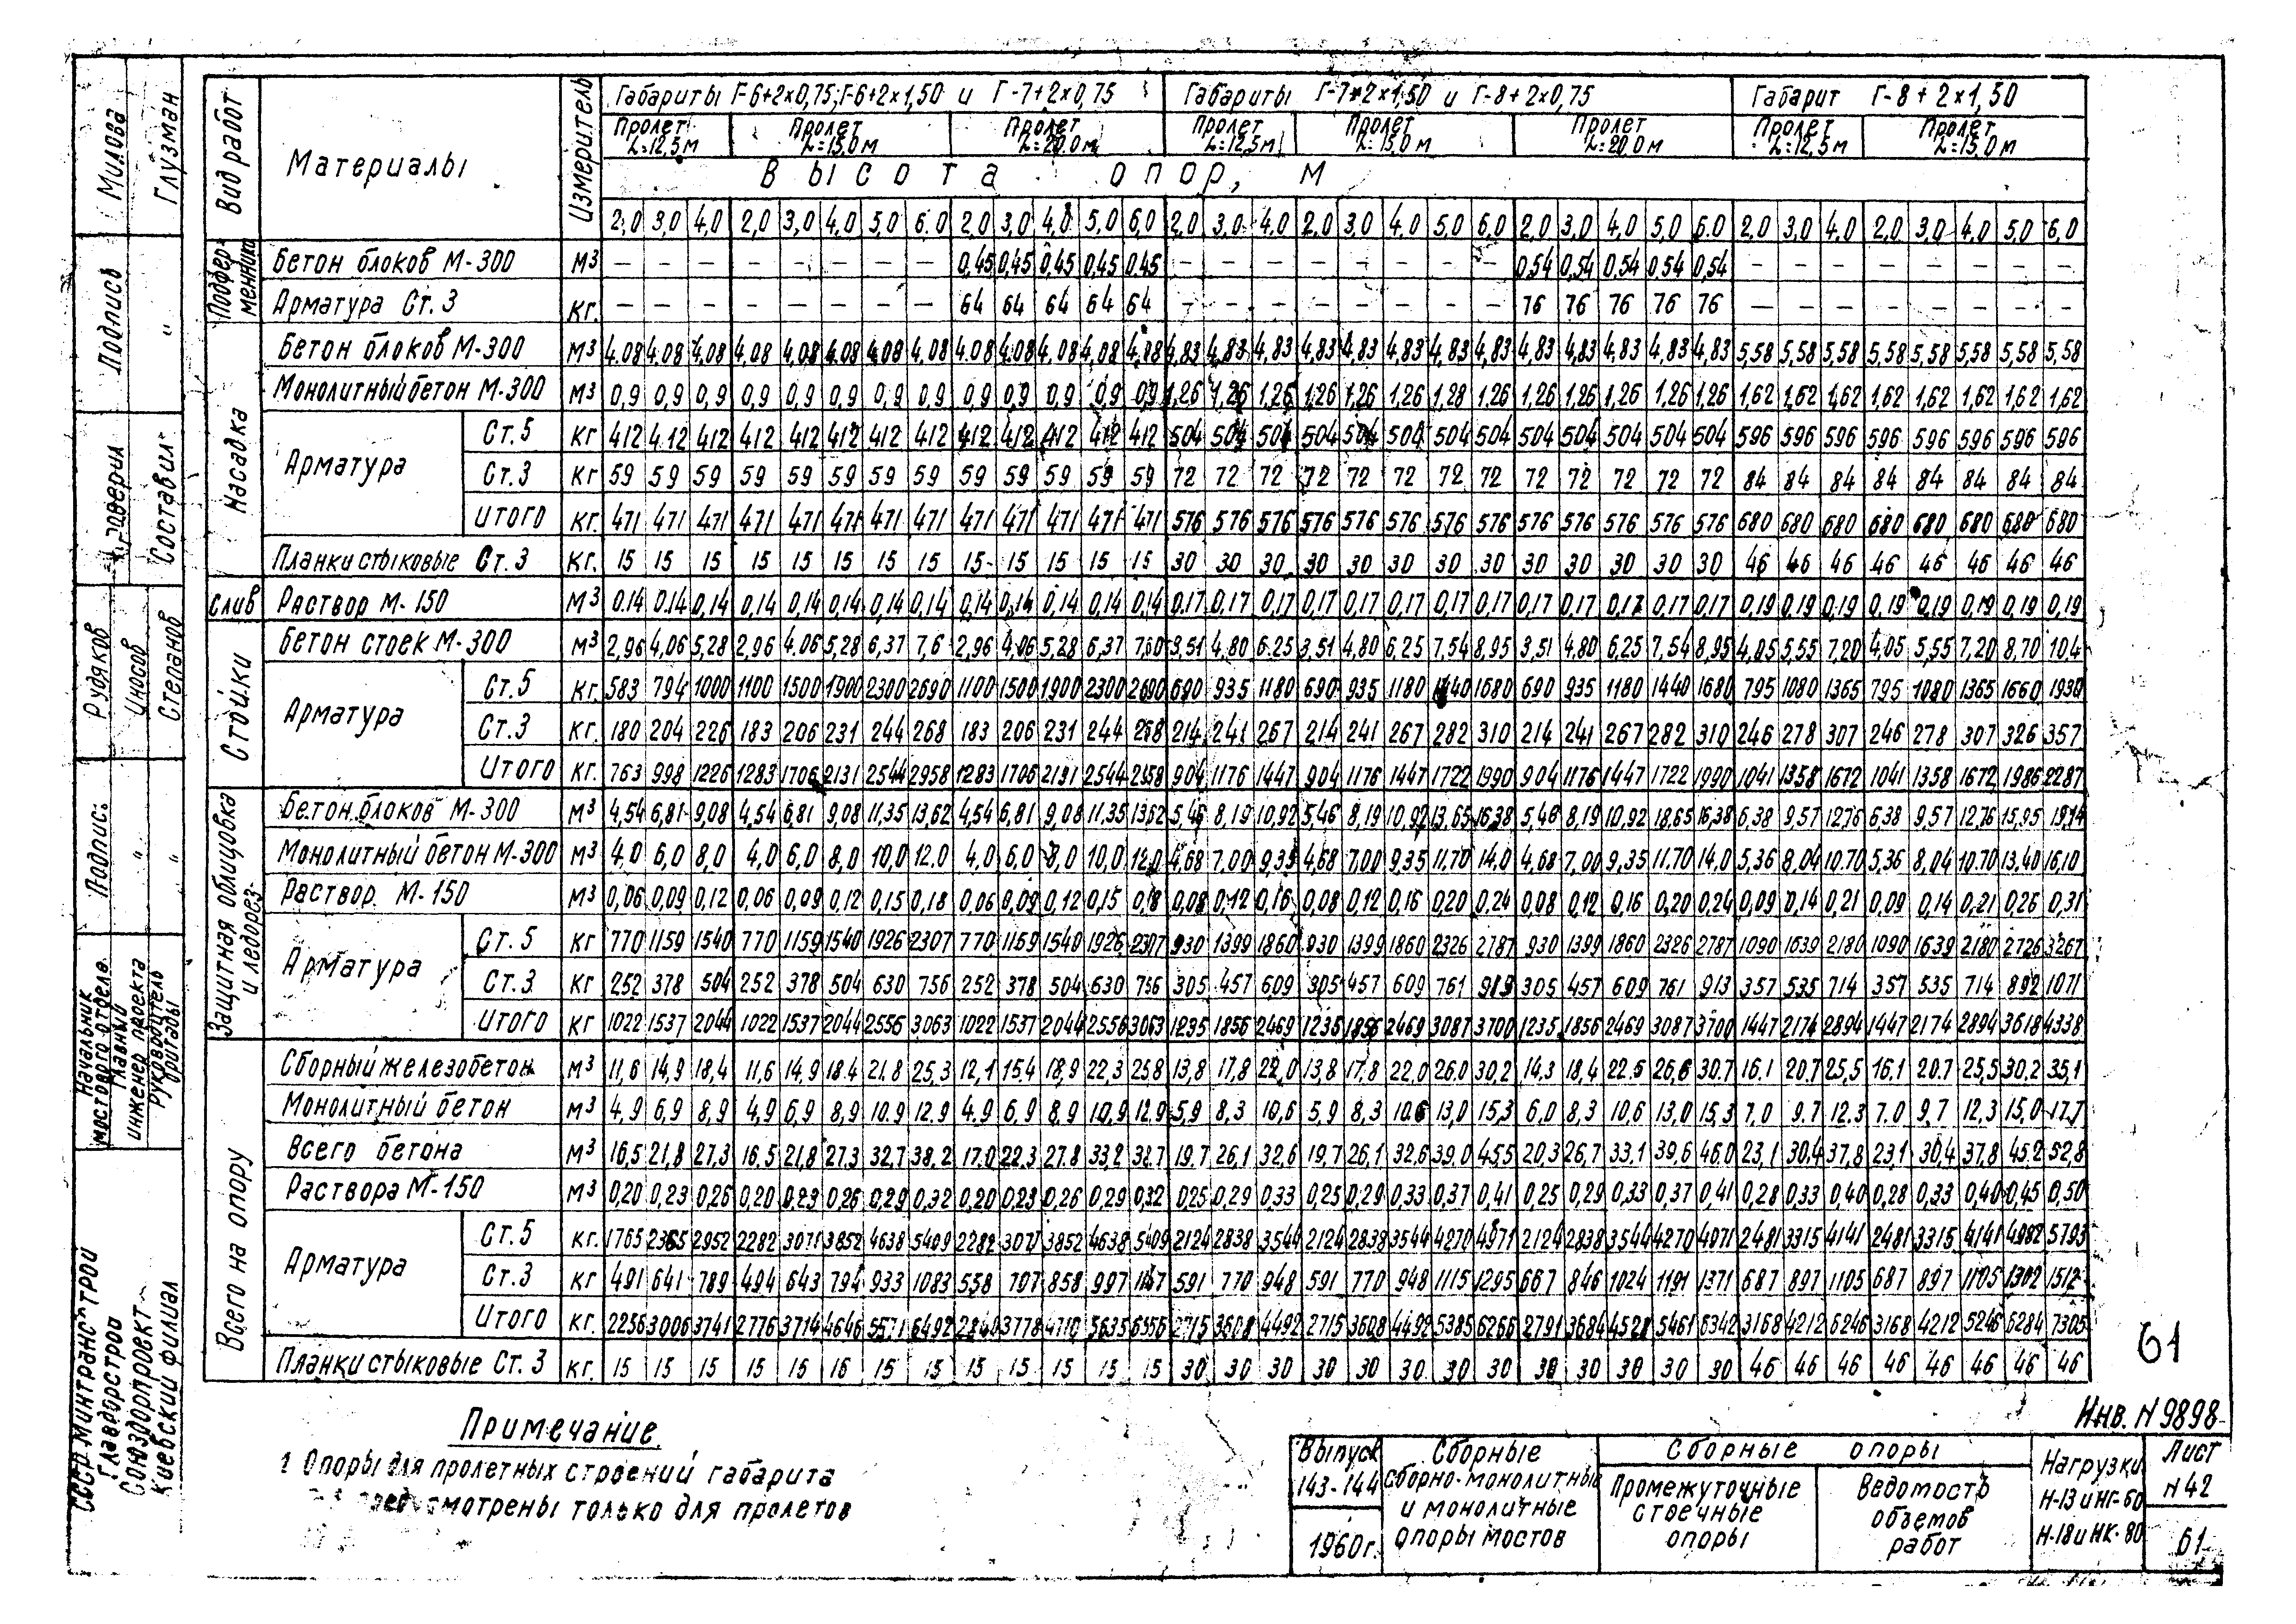 Вид работ
Материалы
Измеритель
Габариты Г-6+2×0,75; Г-6+2×1,50 и Г-7+2×0,75
Габариты Г-7+2×1,50 и Г-8+2×0,75
Габарит Г-8+2×1,50
Пролет L=12,5м
Пролет L=15,0м
Пролет L=20,0м
Пролет L=12,5м
Пролет L=15,0м
Пролет L=20,0м
Пролет L=12,5м
Пролет L=15,0м
Высота опор, м
2,0 3,0 4,0 2,0 3,0 4,0 5,0 6.0 2,0 3,0 4,0 5,0 6,0 2,0 3,0 4,0 2,0 3,0 4,0 5,0 6,0 2,0 3,0 4,0 5,0 6.0 2,0 3,0 4,0 2,0 3,0 4,0 5,0 6,0
Подферменники
Бетон блоков М-300 м3 – – – – – – – – 0,45 0,45 0,45 0,45 0,45 – – – – – – – – 0,54 0,54 0,54 0,54 0,54 – – – – – – – –
Арматура Ст. 3 кг. – – – – – – – – 64 64 64 64 64 – – – – – – – – 76 76 76 76 76 – – – – – – – –
Насадка
Бетон блоков М-300 м3 4.08 4.08 4.08 4.08 4.08 4.08 4.08 4.08 4.08 4.08 4.08 4.08 4.08 4,83 4,83 4,83 4,83 4,83 4,83 4,83 4,83 4,83 4,83 4,83 4,83 4,83 5,58 5,58 5,58 5,58 5,58 5,58 5,58 5,58
Монолитный бетон М-300 м3 0,9 0,9 0,9 0,9 0,9 0,9 0,9 0,9 0,9 0,9 0,9 0,9 0,9 1,26 1,26 1,26 1,26 1,26 1,26 1,28 1,26 1,26 1,26 1,26 1,26 1,26 1,62 1,62 1,62 1,62 1,62 1,62 1,62 1,62
Арматура
Ст.5 кг 412 4.12 412 412 412 412 412 412 412 412 412 412 412 504 504 504 504 504 504 504 504 504 504 504 504 504 596 596 596 596 596 596 596 596
Ст.3 кг 59 59 59 59 59 59 59 59 59 59 59 59 59 72 72 72 72 72 72 72 72 72 72 72 72 72 84 84 84 84 84 84 84 84
Итого кг. 471 471 471 471 471 471 471 471 471 471 471 471 471 576 576 576 576 576 576 576 576 576 576 576 576 576 680 680 680 680 680 680 680 680
Планки стыковые Ст. 3 кг. 15 15 15 15 15 15 15 15 15 15 15 15 15 30 30 30 30 30 30 30 30 30 30 30 30 30 46 46 46 46 46 46 46 46
Слив
Раствор М-150 м3 0.14 0.14 0,14 0,14 0,14 0,14 0,14 0,14 0,14 0,14 0,14 0,14 0,14 0,17 0,17 0,17 0,17 0,17 0,17 0,17 0,17 0,17 0,17 0,17 0,17 0,17 0,19 0,19 0,19 0,19 0,19 0,19 0,19 0,19
Стойки
Бетон стоек М-300 м3 2,96 4,06 5,28 2,96 4.06 5,28 6,37 7,6 2,96 4,06 5,28 6,37 7,60 3,51 4,80 6.25 3,51 4,80 6,25 7,54 8,95 3,51 4,80 6,25 7,54 8,95 4,05 5,55 7,20 4,05 5,55 7,20 8,70 10,4
Арматура
Ст.5 кг. 583 794 1000 1100 1500 1900 2300 2690 1100 1500 1900 2300 2690 690 935 1180 690 935 1180 1440 1680 690 935 1180 1440 1680 795 1080 1365 795 1080 1365 1660 1930
Ст.3 кг. 180 204 226 183 206 231 244 268 183 206 231 244 268 214 241 267 214 241 267 282 310 214 241 267 282 310 246 278 307 246 278 307 326 357
Итого кг. 763 998 1226 1283 1706 2131 2544 2958 1283 1706 2131 2544 2958 904 1176 1447 904 1176 1447 1722 1990 904 1176 1447 1722 1990 1041 1358 1672 1041 1358 1672 1986 2287
Защитная облицовка и ледорез.
Бетон блоков М-300 м3 4,54 6,81 9,08 4,54 6,81 9,08 11,35 13,62 4,54 6,81 9,08 11,35 13,62 5,46 8,19 10,92 5,46 8,19 10,92 13,65 16,38 5,46 8,19 10,92 13,65 16,38 6,38 9,57 12,76 6,38 9,57 12,76 15,95 19,14
Монолитный бетон М-300 м3 4,0 6,0 8,0 4,0 6,0 8,0 10,0 12.0 4,0 6,0 8,0 10,0 12,0 4,68 7,00 9,35 4,68 7,00 9,35 11,70 14,0 4,68 7,00 9,35 11.70 14,0 5,36 8,04 10.70 5,36 8,04 10.70 13,40 16,10
Раствор М-150 м3 0,06 0,09 0,12 0,06 0,09 0,12 0,15 0,18 0,06 0,09 0,12 0,15 0,18 0,08 0,12 0,16 0,08 0,12 0,16 0,20 0,24 0,08 0,12 0,16 0,20 0,24 0,09 0,14 0,21 0,09 0,14 0,21 0,26 0,31
Арматура
Ст. 5 кг 770 1159 1540 770 1159 1540 1926 2307 770 1159 1540 1926 2307 930 1399 1860 930 1399 1860 2326 2787 930 1399 1860 2326 2787 1090 1639 2180 1090 1639 2180 2726 3267
Ст.3 кг 252 378 504 252 378 504 630 756 252 378 504 630 756 305 457 609 305 457 609 761 913 305 457 609 761 913 357 535 714 357 535 714 892 1071
Итого кг 1022 1537 2044 1022 1537 2044 2556 3063 1022 1537 2044 2556 3063 1235 1856 2469 1235 1856 2469 3087 3700 1235 1856 2469 3087 3700 1447 2174 2894 1447 2174 2894 3618 4338
Всего на опору
Сборный железобетон м3 11,6 14,9 18,4 11,6 14,9 18.4 21,8 25,3 12,1 15.4 18,9 22,3 25.8 13,8 17,8 22,0 13,8 17,8 22,0 26.0 30,2 14,3 18,4 22.5 26,6 30.7 16.1 20.7 25,5 16.1 20.7 25,5 30.2 35,1
Монолитный бетон м3 4.9 6,9 8,9 4,9 6,9 8,9 10.9 12.9 4.9 6,9 8,9 10,9 12,9 5,9 8,3 10,6 5,9 8,3 10,6 13,0 15,3 6,0 8,3 10,6 13,0 15,3 7,0 9.7 12.3 7.0 9,7 12,3 15,0 17,7
Всего бетона м3 16,5 21,8 27,3 16.5 21,8 27.3 32,7 38,2 17.0 22,3 27.8 33,2 38,7 19,7 26,1 32,6 19,7 26,1 32,6 39,0 45,5 20,3 26,7 33,1 39,6 46,0 23,1 30,4 37,8 23,1 30,4 37,8 45,2 52,8
Раствора М-150 м3 0,20 0,23 0,26 0,20 0,23 0,26 0,29 0,32 0,20 0,23 0,26 0,29 0,32 0,25 0,29 0,33 0,25 0,29 0,33 0,37 0,41 0,25 0,29 0,33 0,37 0,41 0,28 0,33 0,40 0,28 0,33 0,40 0,45 0,50
Арматура
Ст. 5 кг. 1765 2365 2952 2282 3071 3852 4638 5409 2282 3071 3852 4638 5409 2124 2838 3544 2124 2838 3544 4270 4971 2124 2838 3544 4270 4971 2481 3315 4141 2481 3315 4141 4982 5793
Ст.3 кг 491 641 789 494 643 794 933 1083 558 707 858 997 1147 591 770 948 591 770 948 1115 1295 667 846 1024 1191 1371 687 897 1105 687 897 1105 1302 1512
Итого кг. 2256 3006 3741 2776 3714 4646 5571 6492 2840 3778 4710 5635 6556 2715 3608 4492 2715 3608 4492 5385 6266 2791 3684 4528 5461 6342 3168 4212 5246 3168 4212 5246 6284 7305
Планки стыковые Ст. 3 кг. 15 15 15 15 15 15 15 15 15 15 15 15 15 30 30 30 30 30 30 30 30 30 30 30 30 30 46 46 46 46 46 46 46 46
61
Примечание
1 Опоры для пролетных строений габарита
предусмотрены только для пролетов
Инв. N 9898
Выпуск 143-144
1960г.
Сборные
сборно-монолитные
и монолитные
опоры мостов
Сборные опоры
Промежуточные
стоечные
опоры
Ведомость
объемов
работ
Нагрузки
Н-13 и НГ-60
Н-18 и НК-80
Лист
N 42
61
Милова
Глузман
Подпись
"
Проверил
Составил
Рудяков
Иносов
Степанов
Подпис.
"
"
Начальник мостового отдела
Главный инженер проекта
Руководитель бригады
СССР Минтрансстрой
Главдорстрой
Союздорпроект
Киевский филиал